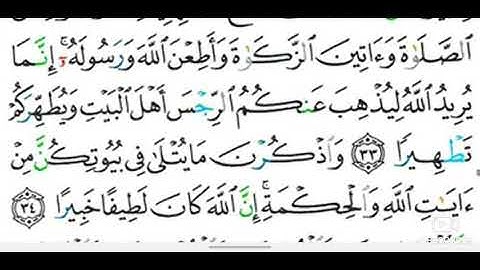 ٱلصَّلَوٰةَ وَءَاتِينَ ٱلزَّكَوٰةَ وَأَطِعْنَ ٱللَّهَ وَرَسُولَهُۥٓ ۚ إِنَّمَا
يُرِيدُ ٱللَّهُ لِيُذْهِبَ عَنكُمُ ٱلرِّجْسَ أَهْلَ ٱلْبَيْتِ وَيُطَهِّرَكُمْ
تَطْهِيرًا ﴿٣٣﴾ وَٱذْكُرْنَ مَا يُتْلَىٰ فِى بُيُوتِكُنَّ مِنْ
ءَايَٰتِ ٱللَّهِ وَٱلْحِكْمَةِ ۚ إِنَّ ٱللَّهَ كَانَ لَطِيفًا خَبِيرًا ﴿٣٤﴾